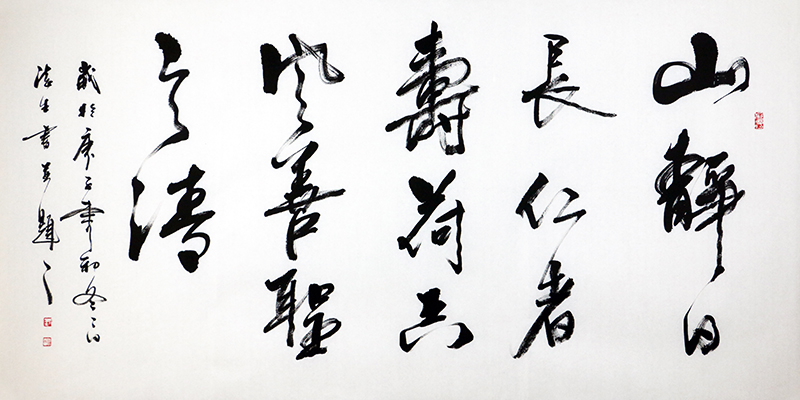 山靜日
長仁者
壽荷香
風善聖
之清
歲於庚子年初冬之日
生書並題之